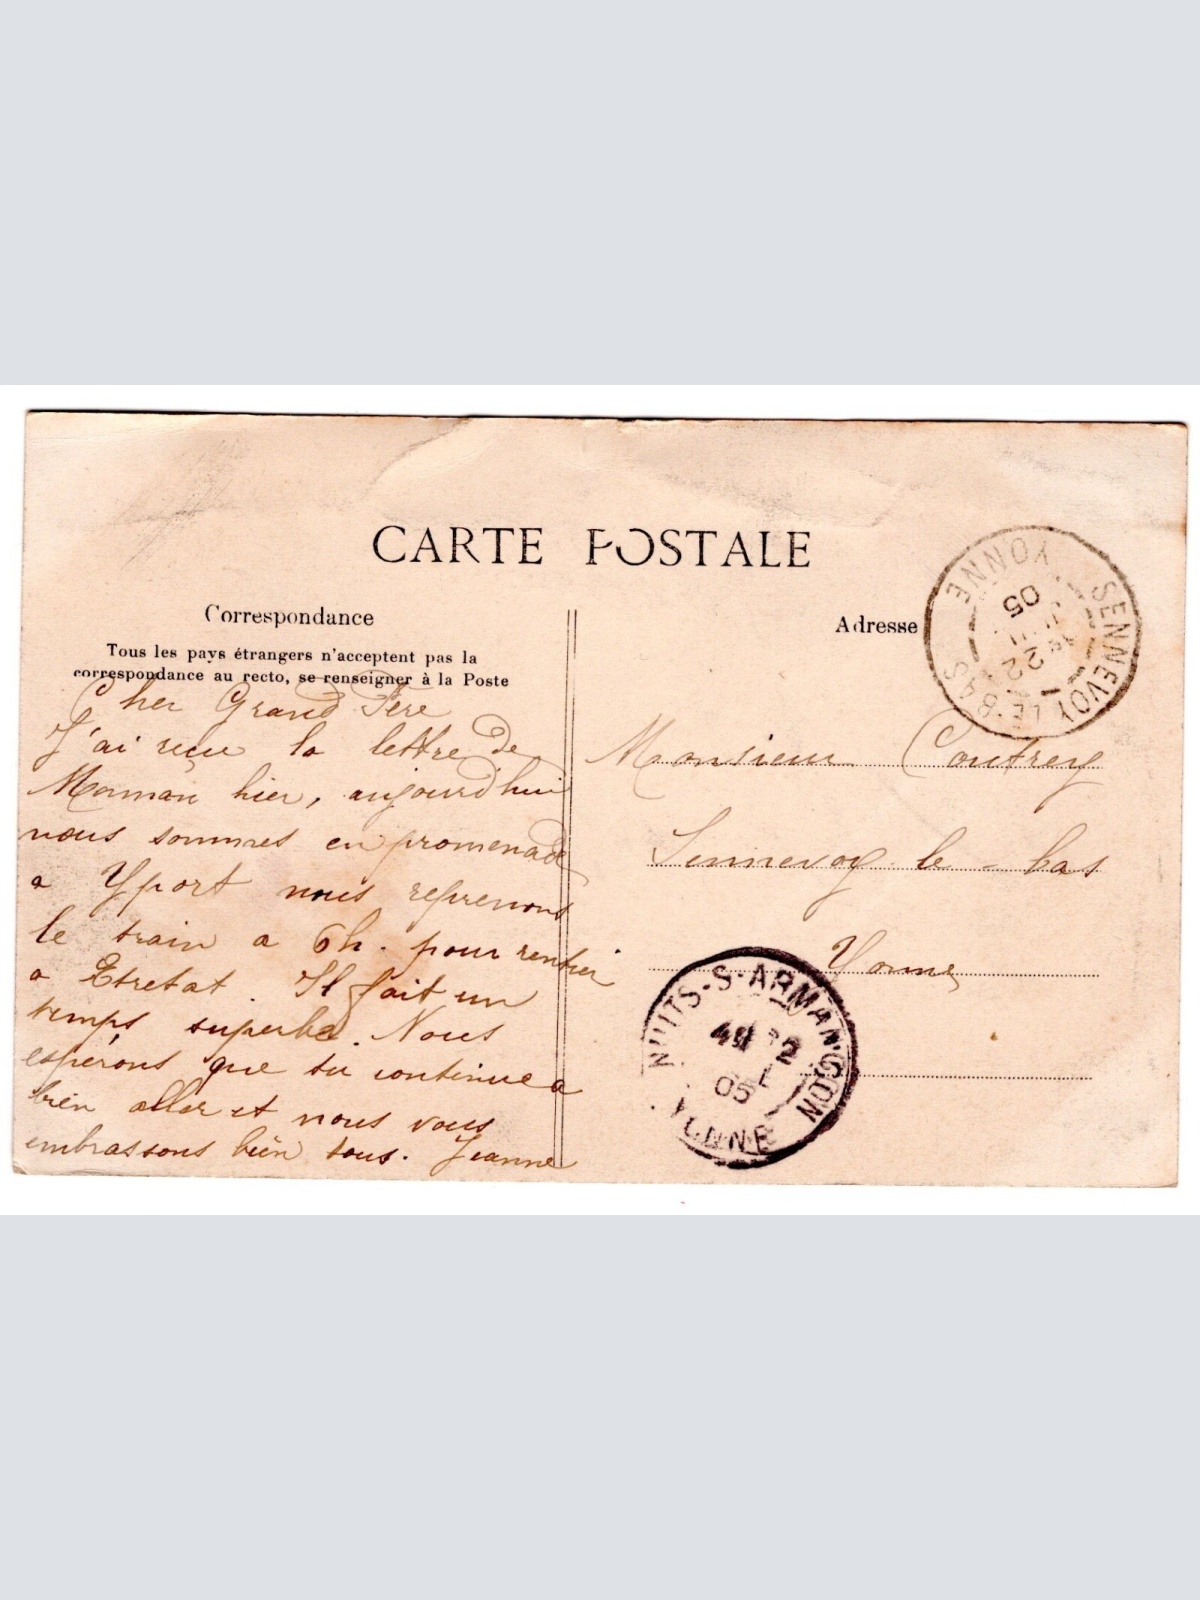 CARTE POSTALE
Correspondance
Tous les pays étrangers n'acceptent pas la
correspondance au recto, se renseigner à la Poste
Cher Grand Père
J'ai reçu la lettre de
Maman hier, aujourd'hui
nous sommes en promenade
a Yport nous reprenons
le train a 6h. pour rentrer
a Etretat. Il fait un
temps superbe. Nous
espérons que tu continue a
bien aller et nous vous
embrassons bien tous. Jeanne
Adresse
Monsieur Coutrey
Sennevoy-le-bas
Yonne
SENNEVOY LE BAS
YONNE
22
05
NUITS-S-ARMANÇON
YONNE
05